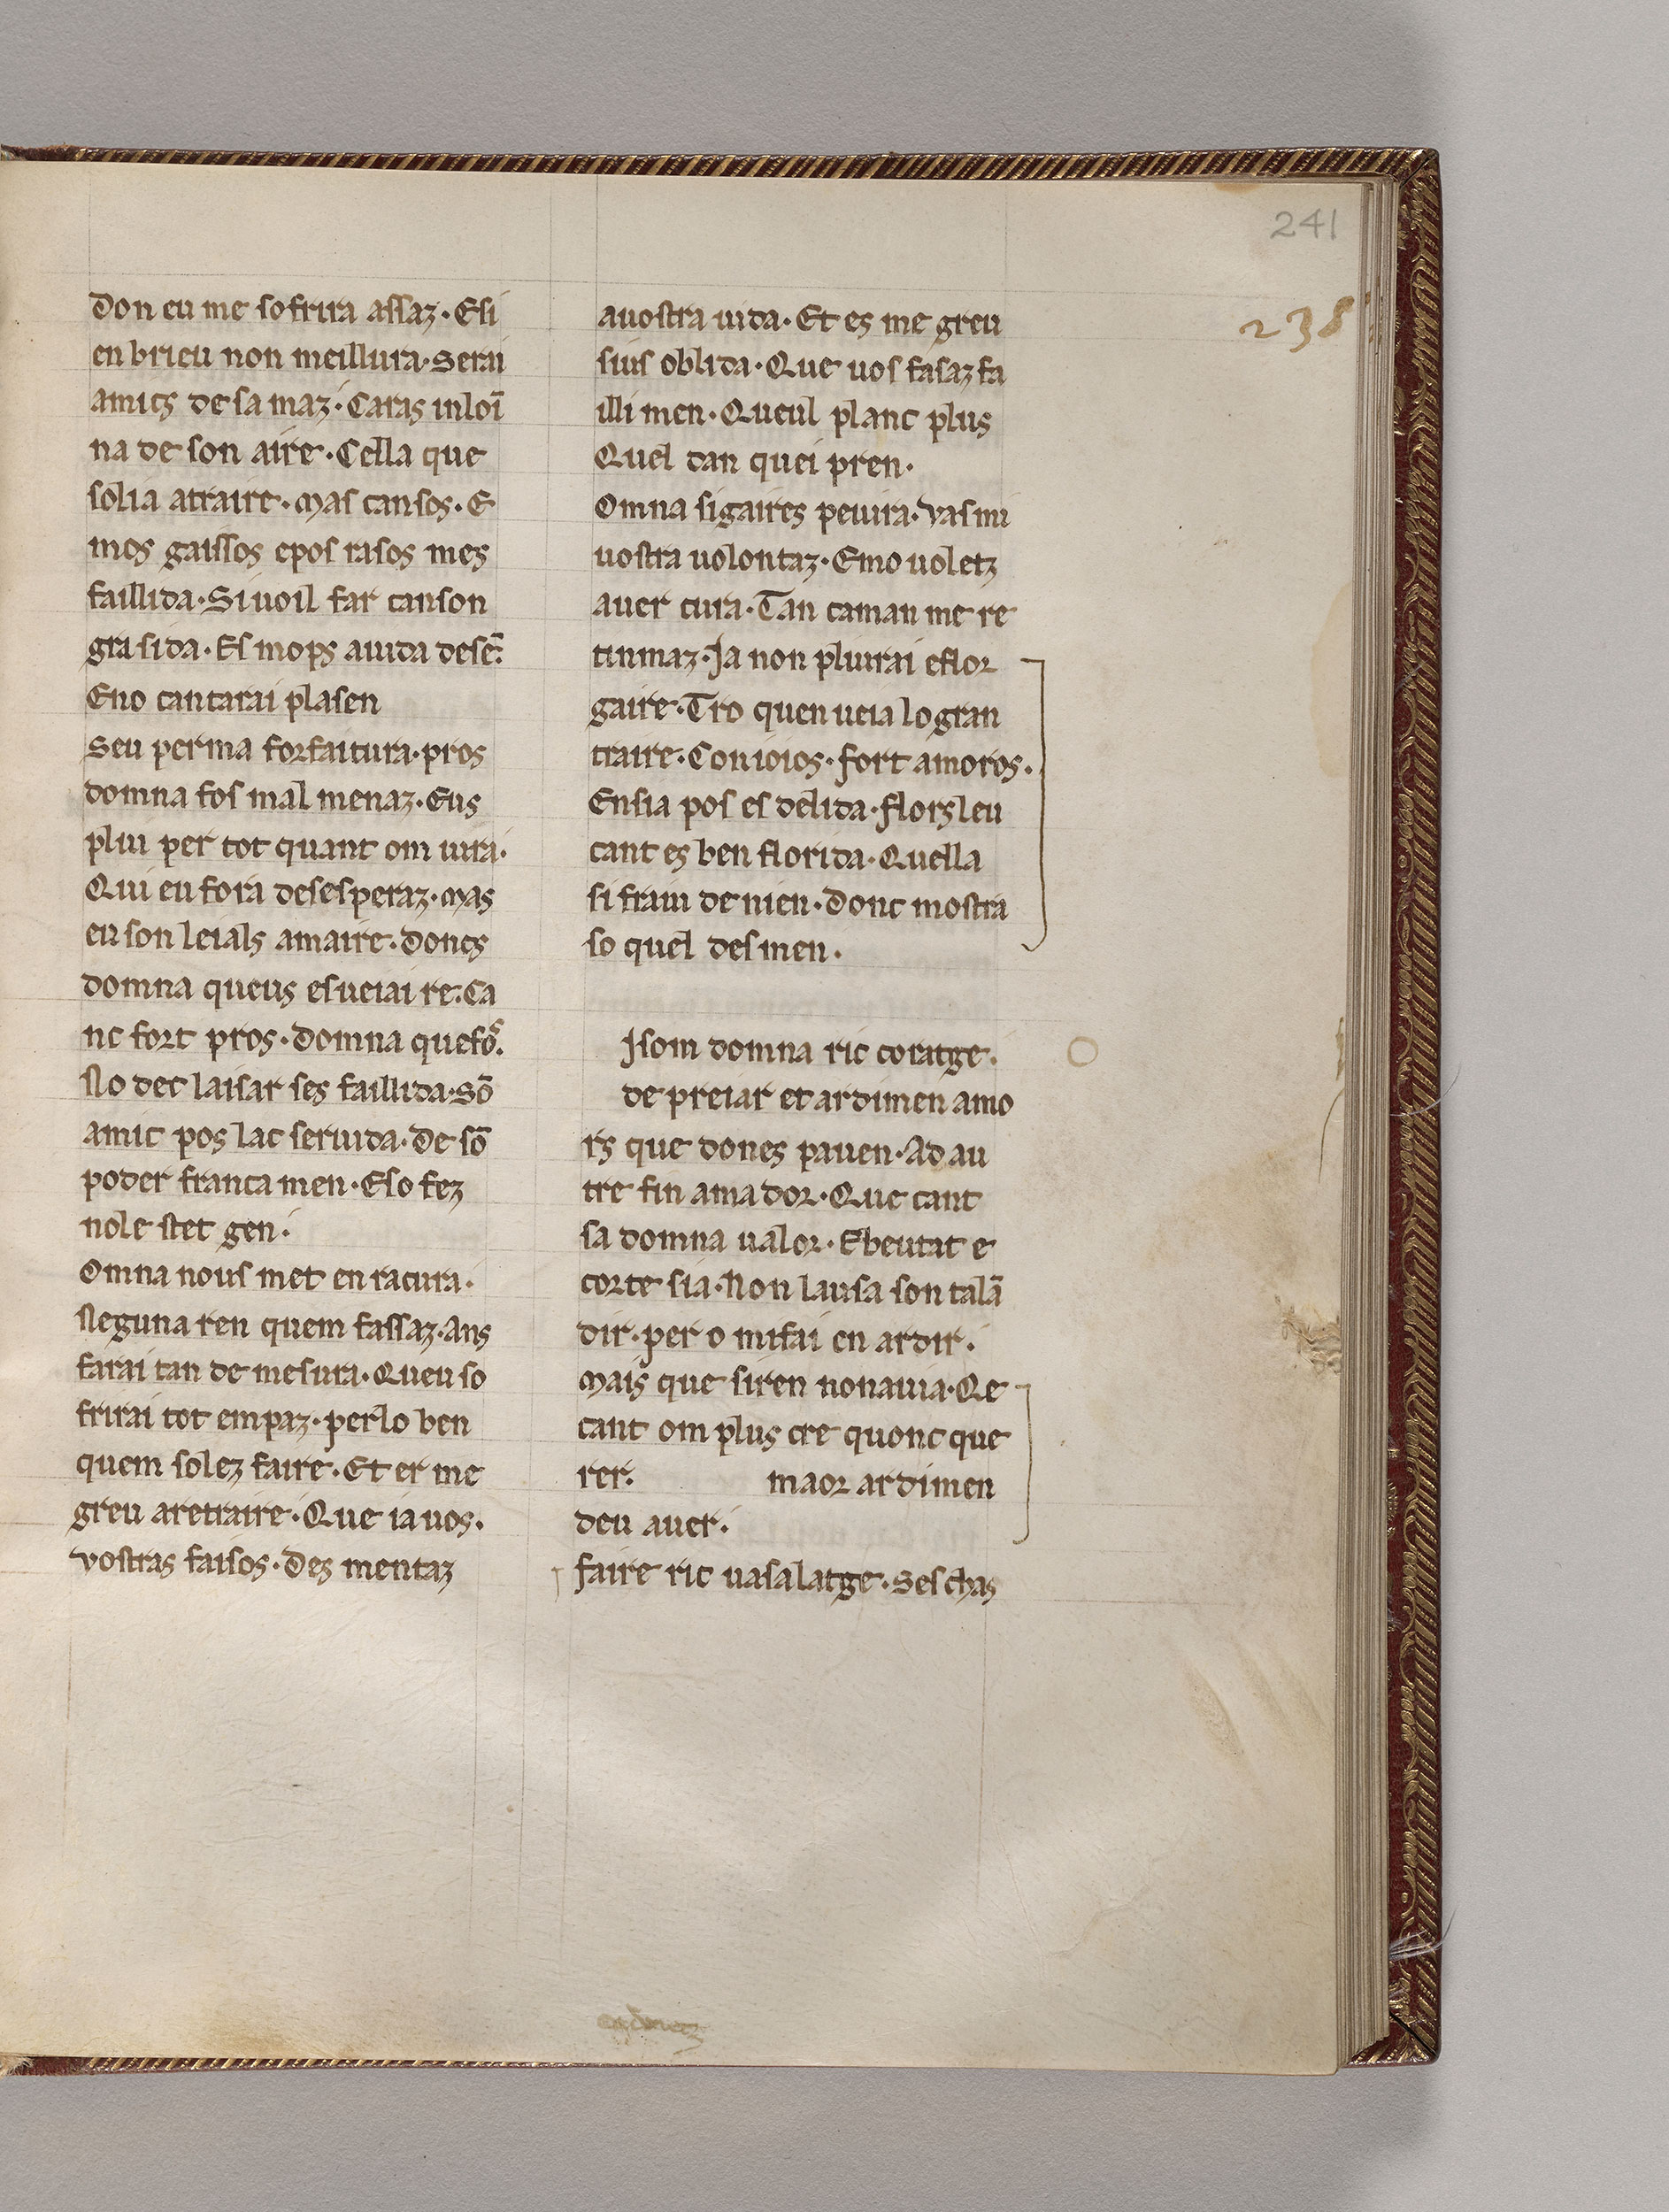 241
238
Don eu me sofrira assaz · Esi
en brieu non meillura · Serai
amics de sa maz · Caras inloī
na de son aire · Cella que
solia atraire · Mas cansos · E
mos gaissos epos rasos mes
faillida · Si uoil far canson
grasida · Es mops aiuda desē·
Eno cantarai plasen
Seu per ma forfaitura · pros
domna fos mal menaz · Eus
pliu per tot quant om iura ·
Qui eu fora desesperaz · Mas
eu son leials amaire · Doncs
domna queus es ueiaire · Ca
nc fort pros · domna quefos·
No dec laisar ses faillida · Sō
amic pos lac seruida · De sō
poder franca men · Eso fez
nole stet gen ·
Omna nous met en racura ·
Neguna ren quem fassaz · Ans
farai tan de mesura · Queu so
frirai tot em paz · per lo ben
quem solez faire · Et er me
greu aretraire · Que ia uos ·
Vostras faisos · Dez mentaz
auostra uida · Et es me greu
sius oblida · Que uos fasaz fa
illi men · Queul planc plus
Quel dan quei pren ·
Omna sigaires peiuira · Vas mi
uostra uolontaz · Emo uoletz
auer cura · Tan caman me re
tinmaz · Ja non pliurai eflor
gaire · Tro quen ueia lo gran
traire · Con ioios · fort amoros ·
Ensia pos es delida · flors leu
cant es ben florida · Quella
si fraiu de nien · Donc mostra
so quel desmen ·
Jsom domna ric coratge ·
de preiar et ardimen amo
rs que dones pauen · Ad au
tre fin amador · Que cant
sa domna ualor · Ebeutat e
corte sia · Non lausa son talā
dir · per o mifai en ardir ·
Mais que siren non auia · Qe
cant om plus cre quonc que
rer · maor ardimen
deu auer ·
faire ric uasalatge · Ses chas